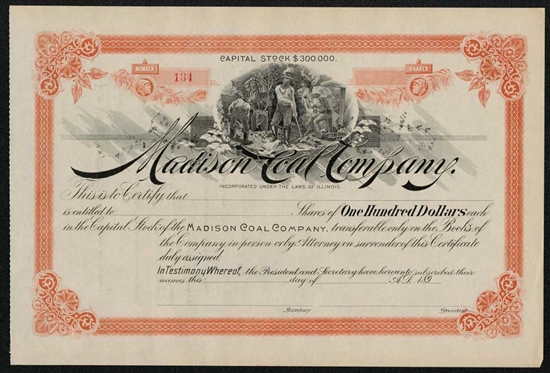 CAPITAL STOCK $300.000.
NUMBER
134
SHARES
Madison Coal Company.
INCORPORATED UNDER THE LAWS OF ILLINOIS.
This is to Certify that
is entitled to Shares of One Hundred Dollars each
in the Capital Stock of the MADISON COAL COMPANY, transferable only on the Books of
the Company in person or by Attorney on surrender of this Certificate
duly assigned
In Testimony Whereof, the President and Secretary have hereunto subscribed their
names this day of A.D. 189
Secretary President